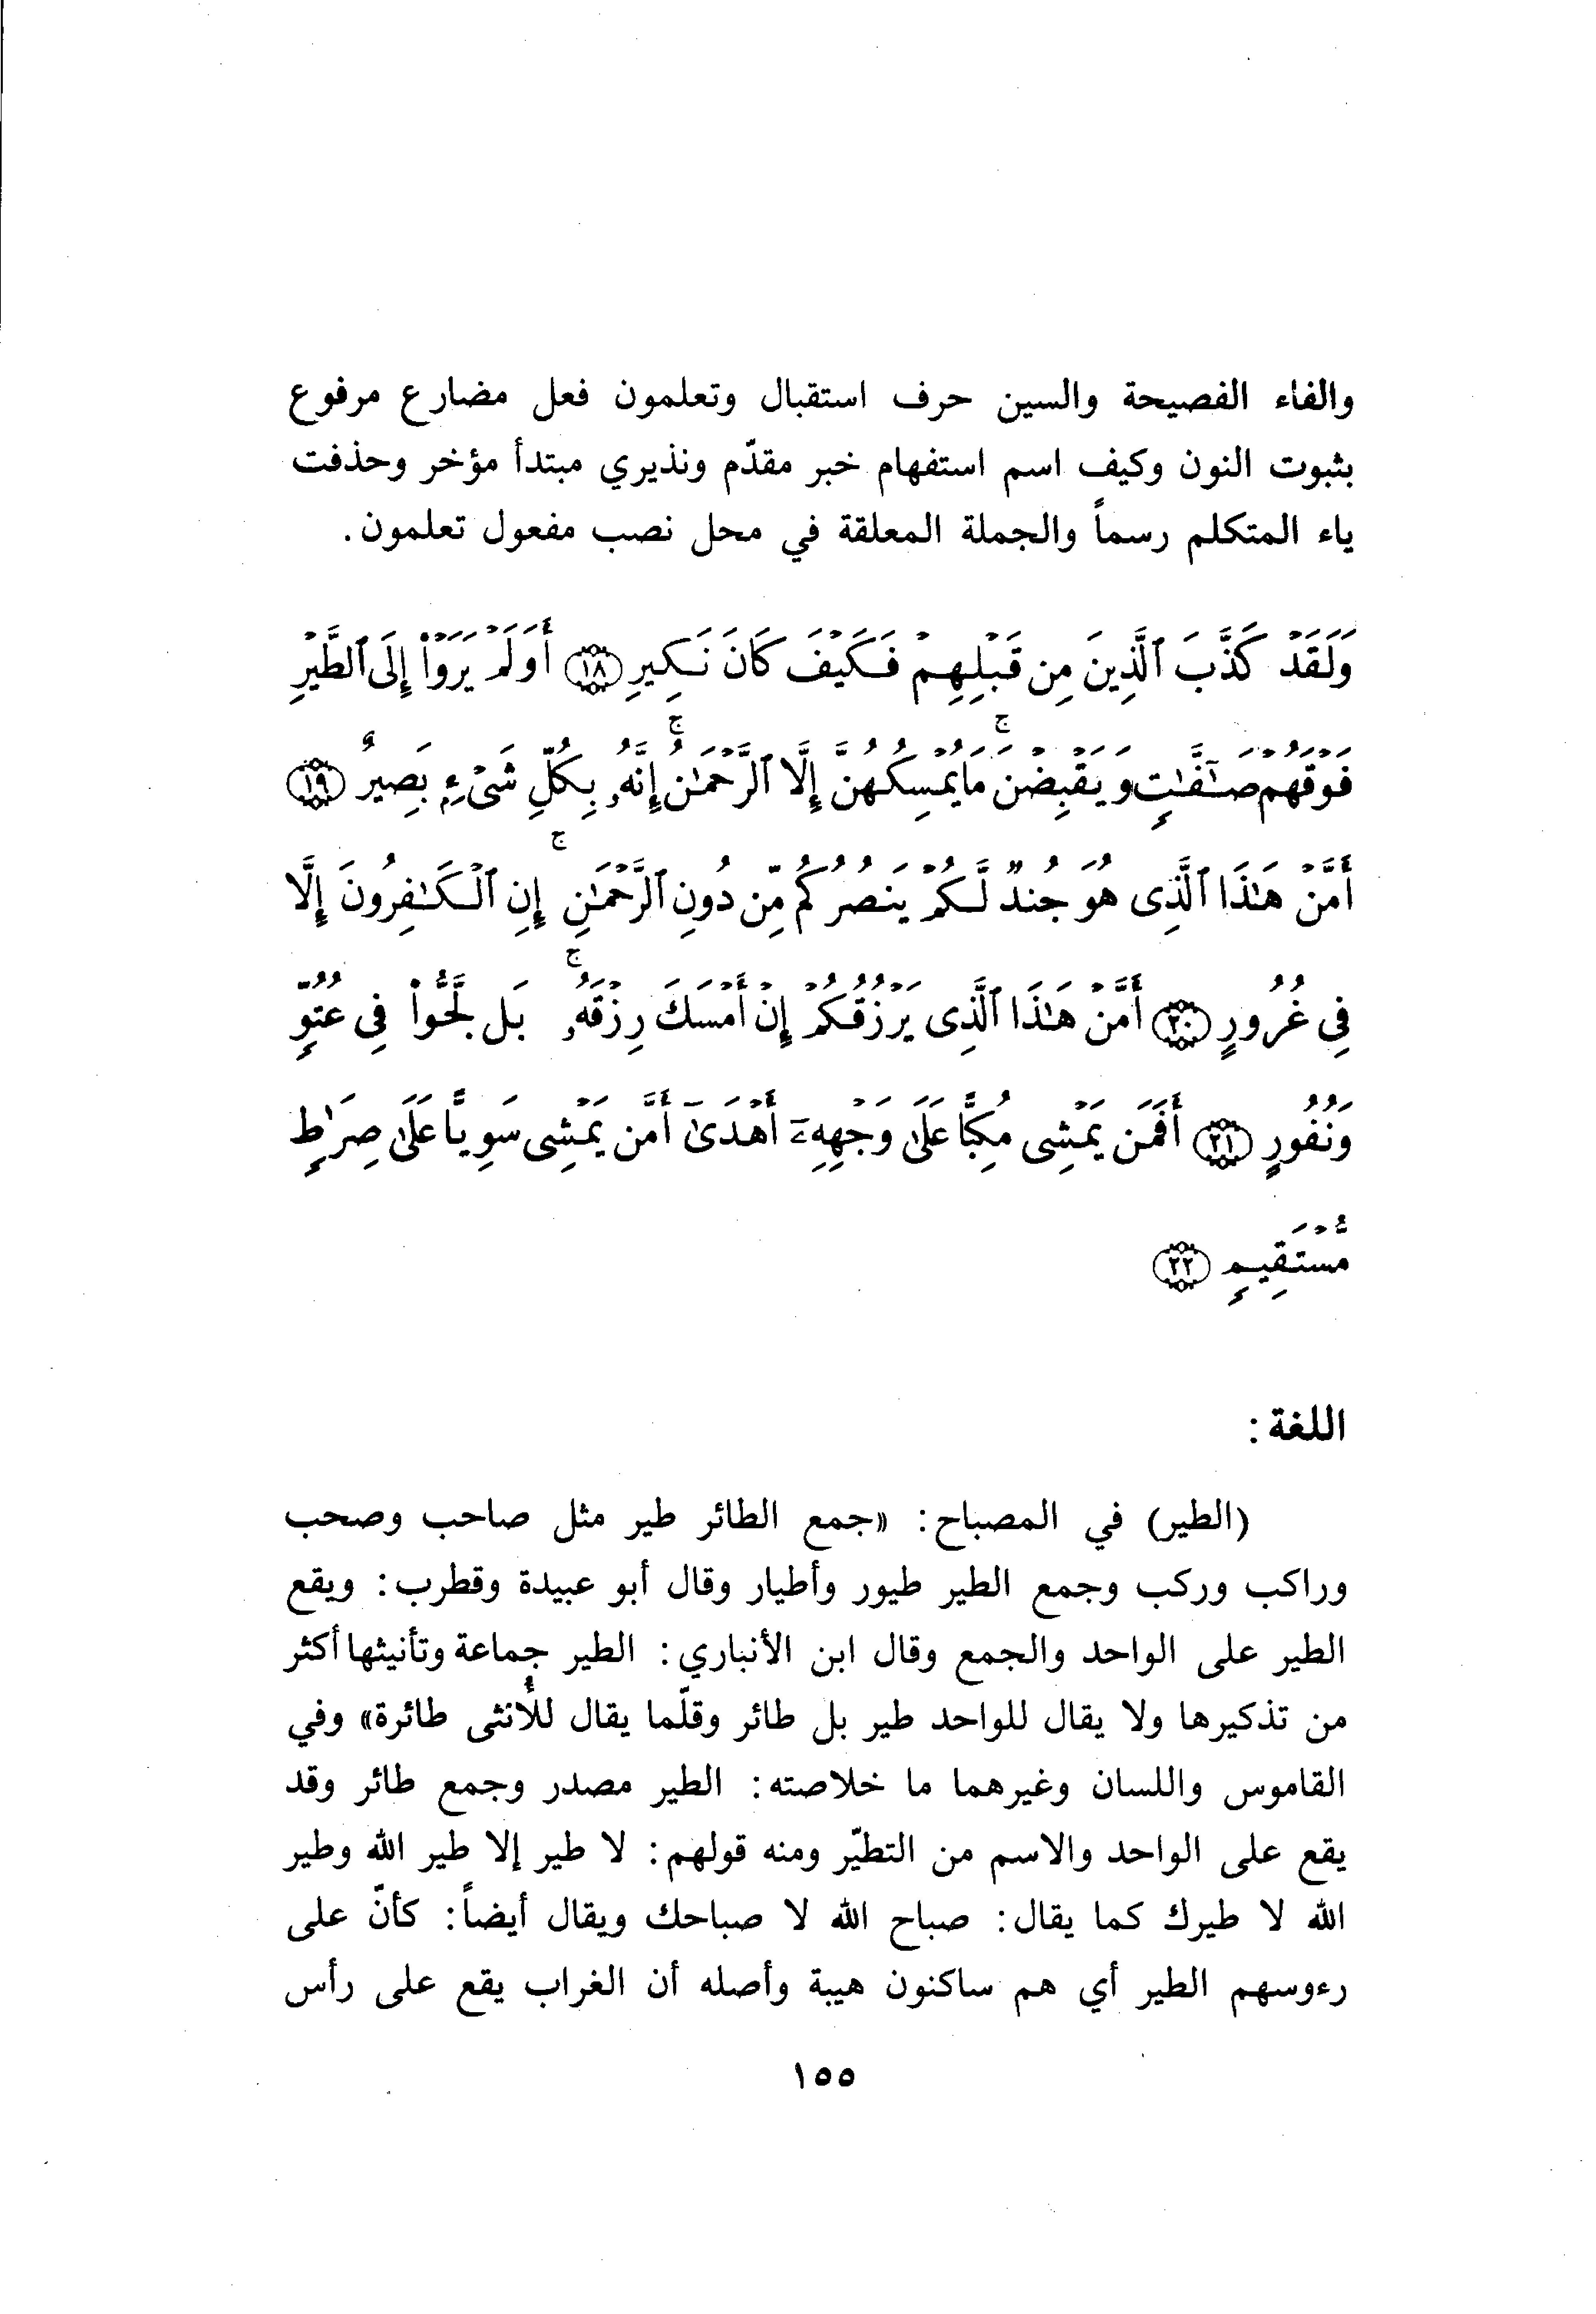 والفاء الفصيحة والسين حرف استقبال وتعلمون فعل مضارع مرفوع
بثبوت النون وكيف اسم استفهام خبر مقدّم ونذيري مبتدأ مؤخر وحذفت
ياء المتكلم رسماً والجملة المعلقة في محل نصب مفعول تعلمون.
وَلَقَدۡ كَذَّبَ ٱلَّذِينَ مِن قَبۡلِهِمۡ فَكَيۡفَ كَانَ نَكِيرِ ١٨ أَوَلَمۡ يَرَوۡاْ إِلَى ٱلطَّيۡرِ
فَوۡقَهُمۡ صَٰٓفَّٰتٖ وَيَقۡبِضۡنَۚ مَا يُمۡسِكُهُنَّ إِلَّا ٱلرَّحۡمَٰنُۚ إِنَّهُۥ بِكُلِّ شَيۡءِۭ بَصِيرٌ ١٩
أَمَّنۡ هَٰذَا ٱلَّذِي هُوَ جُندٞ لَّكُمۡ يَنصُرُكُم مِّن دُونِ ٱلرَّحۡمَٰنِۚ إِنِ ٱلۡكَٰفِرُونَ إِلَّا
فِي غُرُورٍ ٢٠ أَمَّنۡ هَٰذَا ٱلَّذِي يَرۡزُقُكُمۡ إِنۡ أَمۡسَكَ رِزۡقَهُۥۚ بَل لَّجُّواْ فِي عُتُوّٖ
وَنُفُورٍ ٢١ أَفَمَن يَمۡشِي مُكِبًّا عَلَىٰ وَجۡهِهِۦٓ أَهۡدَىٰٓ أَمَّن يَمۡشِي سَوِيًّا عَلَىٰ صِرَٰطٖ
مُّسۡتَقِيمٖ ٢٢
اللغة:
(الطير) في المصباح: «جمع الطائر طير مثل صاحب وصحب
وراكب وركب وجمع الطير طيور وأطيار وقال أبو عبيدة وقطرب: ويقع
الطير على الواحد والجمع وقال ابن الأنباري: الطير جماعة وتأنيثها أكثر
من تذكيرها ولا يقال للواحد طير بل طائر وقلّما يقال للأُنثى طائرة» وفي
القاموس واللسان وغيرهما ما خلاصته: الطير مصدر وجمع طائر وقد
يقع على الواحد والاسم من التطيّر ومنه قولهم: لا طير إلا طير الله وطير
الله لا طيرك كما يقال: صباح الله لا صباحك ويقال أيضاً: كأنّ على
رءوسهم الطير أي هم ساكنون هيبة وأصله أن الغراب يقع على رأس
١٥٥